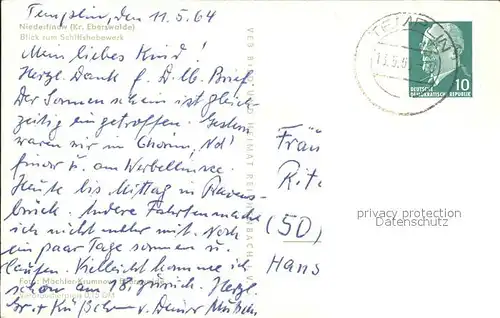 Templin, den 11.5.64
Niederfinow (Kr. Eberswalde)
Blick zum Schiffshebewerk
Mein liebes Kind!
Herzl. Dank f. D. lb. Brief.
Der Sonnenschein ist gleich-
zeitig eingetroffen. Gestern
waren wir in Chorin, Nd.
finow u. am Werbellinsee.
Heute bis Mittag in Ravens-
brück. Andere Fahrten mache
ich nicht mehr mit. Noch
ein paar Tage sonnen u.
laufen. Vielleicht komme ich
schon am 18. zurück. Herzl.
Foto: Mochler-Krumnow
Gr. + Küßchen v. Deiner Mutti
VEB BILD UND HEIMAT REICHENBACH i. V.
TEMPLIN
10
DEUTSCHE
DEMOKRATISCHE REPUBLIK
Fräu
Rit
(50)
Hans
privacy protection
Datenschutz